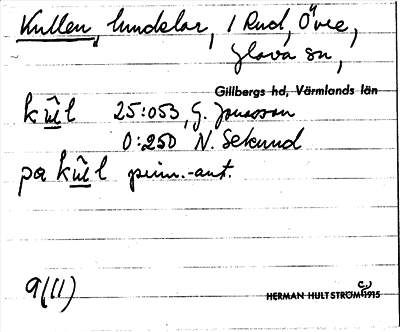 Kullen, hundklar, 1 Rud, Övre,
Glava sn,
Gillbergs hd, Värmlands län
kûl 25:053, G. Jonasson
0:250 N. Sekund
pa kûl prim.-ant.
9(11)
HERMAN HULTSTRÖM 1915